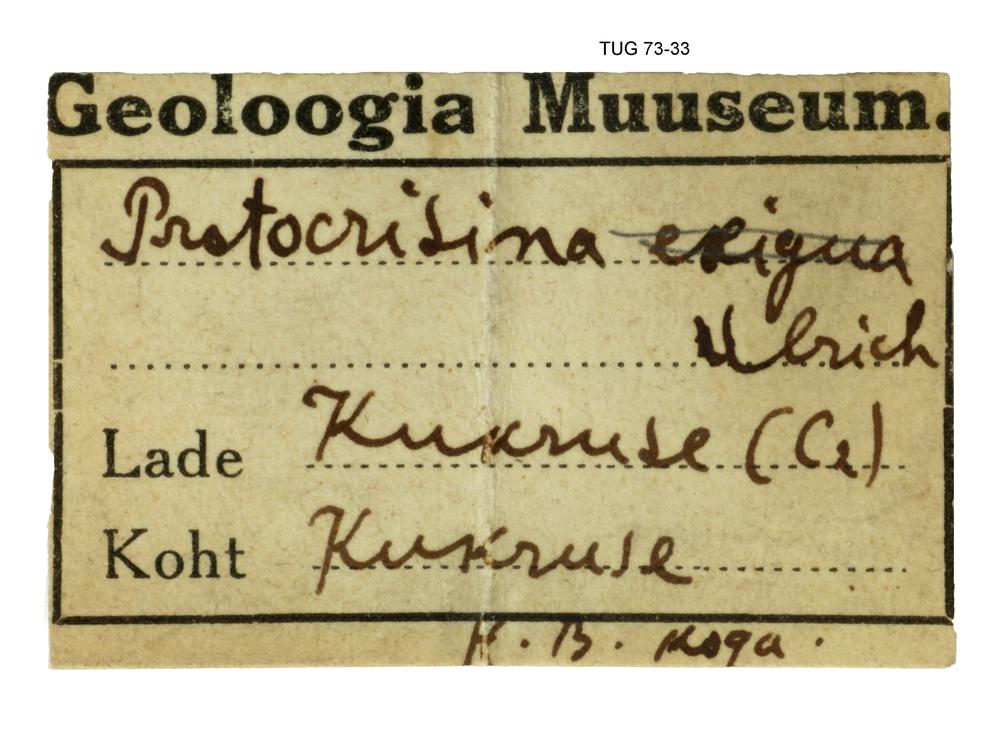 TUG 73-33
Geoloogia Muuseum.
Protocrisina exigua
Ulrich
Lade Kukruse (C2)
Koht Kukruse
K. B. koga.